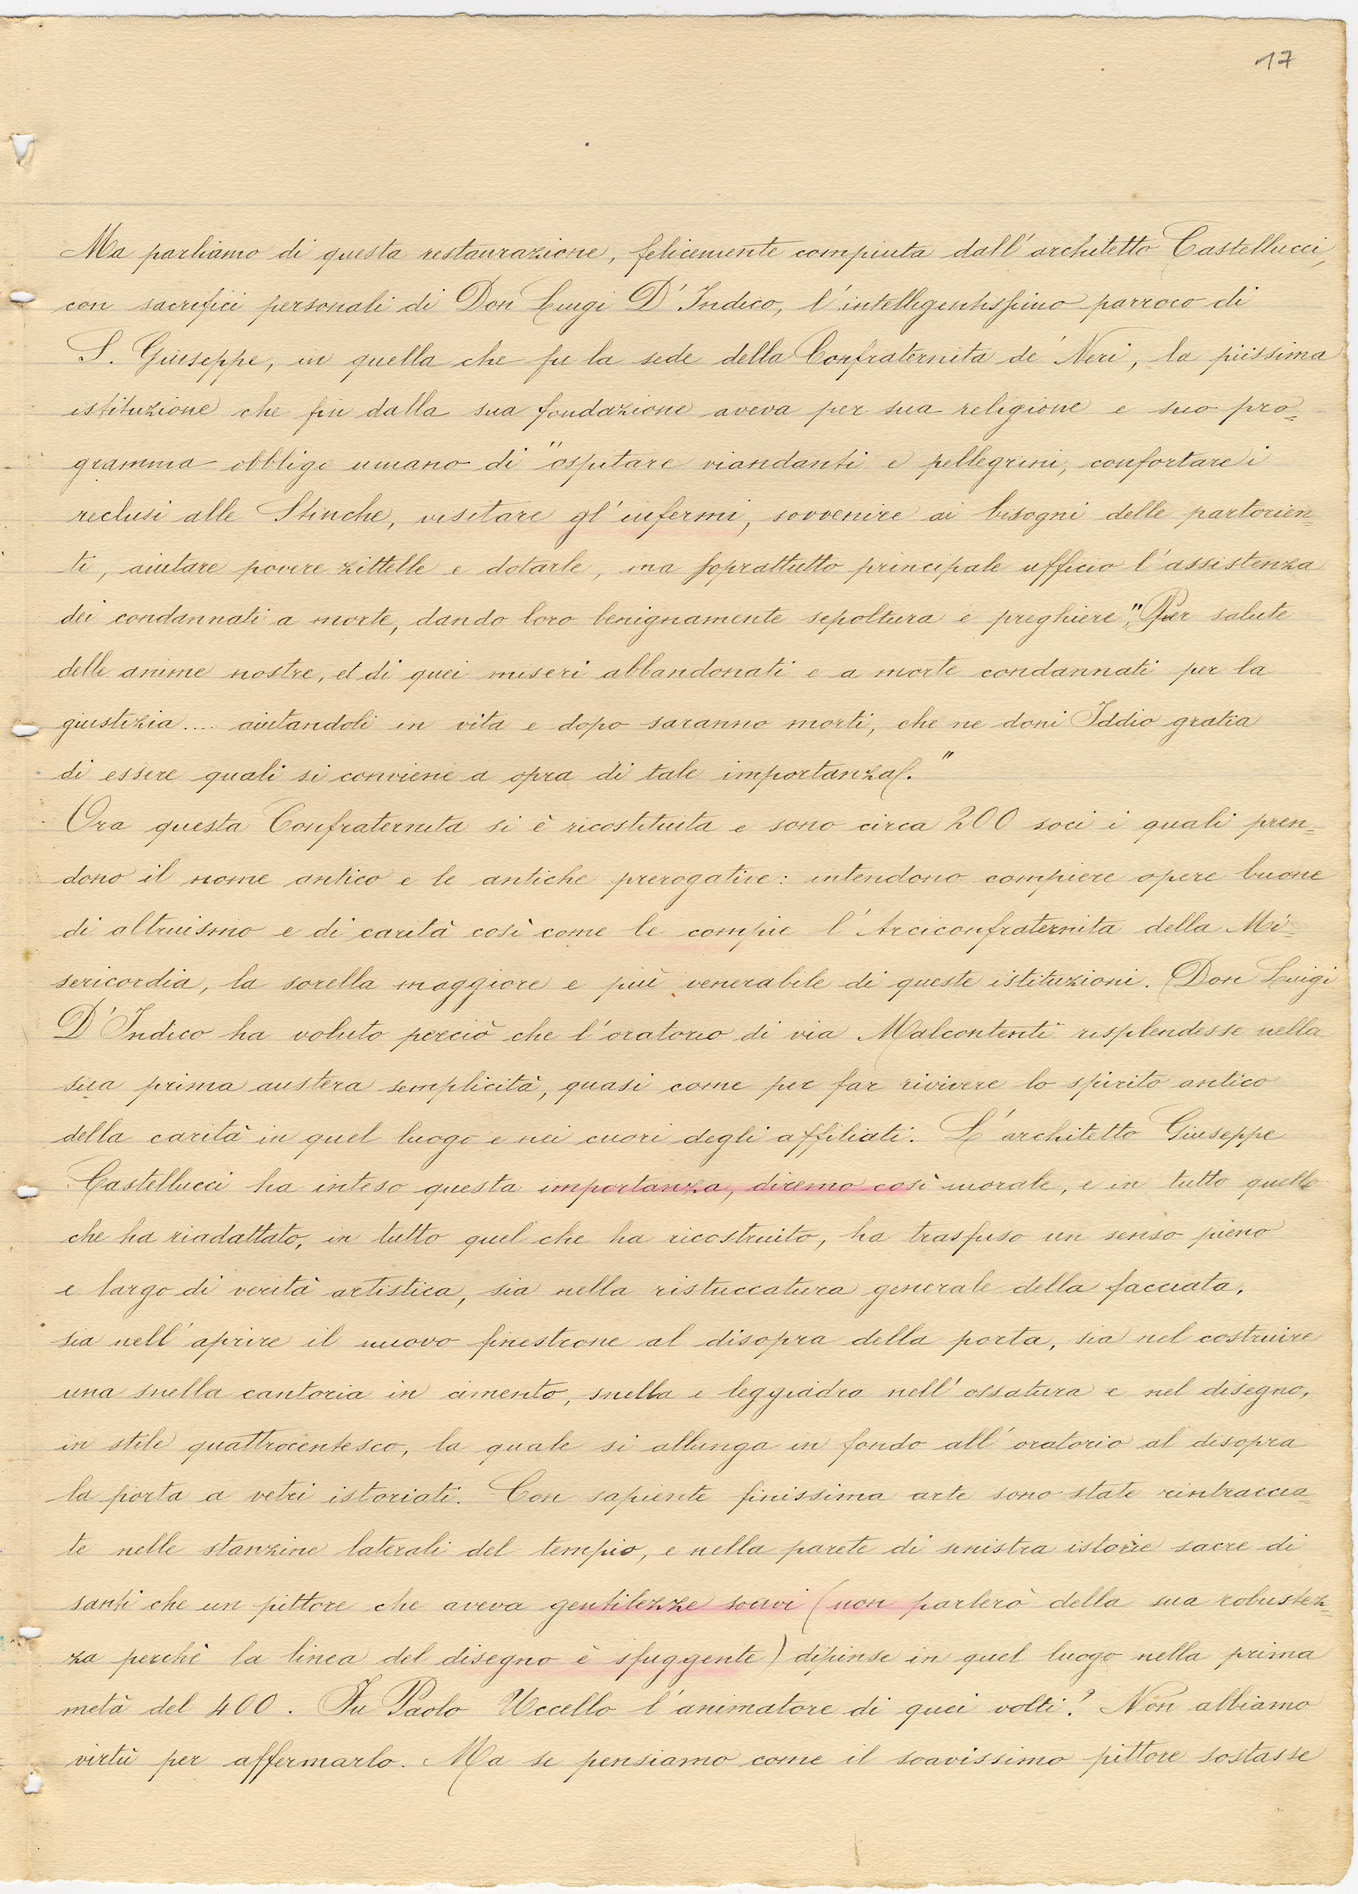 17
Ma parliamo di questa restaurazione, felicemente compiuta dall'architetto Castellucci,
con sacrifici personali di Don Luigi D'Indico, l'intelligentissimo parroco di
S. Giuseppe, in quella che fu la sede della Confraternita de' Neri, la piissima
istituzione che fin dalla sua fondazione aveva per sua religione e suo pro=
gramma obbligo umano di "ospitare viandanti e pellegrini, confortare i
reclusi alle Stinche, visitare gl'infermi, sovvenire ai bisogni delle partorien=
ti, aiutare povere zittelle e dotarle, ma soprattutto principale ufficio l'assistenza
dei condannati a morte, dando loro benignamente sepoltura e preghiere", "Per salute
delle anime nostre, et di quei miseri abbandonati e a morte condannati per la
giustizia.... aiutandoli in vita e dopo saranno morti, che ne doni Iddio gratia
di essere quali si conviene a opra di tale importanza."
Ora questa Confraternita si è ricostituita e sono circa 200 soci i quali pren=
dono il nome antico e le antiche prerogative: intendono compiere opere buone
di altruismo e di carità così come le compie l'Arciconfraternita della Mi=
sericordia, la sorella maggiore e più venerabile di queste istituzioni. Don Luigi
D'Indico ha voluto perciò che l'oratorio di via Malcontenti risplendesse nella
sua prima austera semplicità, quasi come per far rivivere lo spirito antico
della carità in quel luogo e nei cuori degli affiliati. L'architetto Giuseppe
Castellucci ha inteso questa importanza, diremo così morale, e in tutto quello
che ha riadattato, in tutto quel che ha ricostruito, ha trasfuso un senso pieno
e largo di verità artistica, sia nella ristuccatura generale della facciata,
sia nell'aprire il nuovo finestrone al disopra della porta, sia nel costruire
una snella cantoria in cimento, snella e leggiadra nell'ossatura e nel disegno,
in stile quattrocentesco, la quale si allunga in fondo all'oratorio al disopra
la porta a vetri istoriati. Con sapiente finissima arte sono state rintraccia=
te nelle stanzine laterali del tempio, e nella parete di sinistra istorie sacre di
santi che un pittore che aveva gentilezze soavi (non parlerò della sua robustez=
za perchè la linea del disegno è sfuggente) dipinse in quel luogo nella prima
metà del 400. Fu Paolo Uccello l'animatore di quei volti? Non abbiamo
virtù per affermarlo. Ma se pensiamo come il soavissimo pittore sostasse